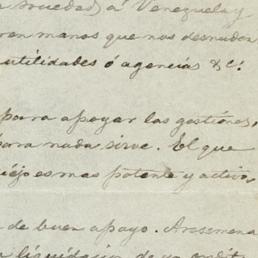 sociedad) á Venezuela y
manos que nos
utilidades ó agencias &c.
para apoyar las gestiones,
para nada sirve. El que
es mas potente y activo,
de buen apoyo.
liquidacion de